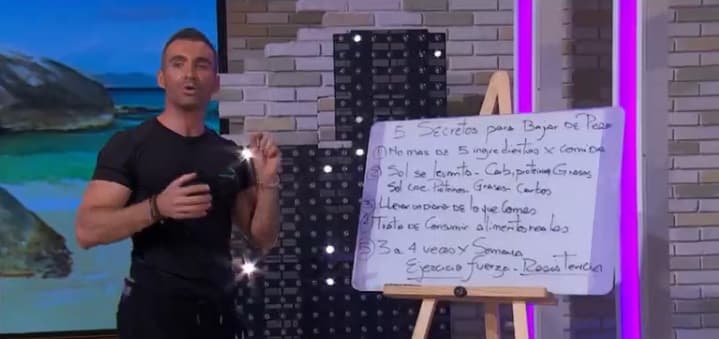 5 Secretos para Bajar DE Peso
① No mas de 5 ingredientes x comidas
② Sol se levanta - Carb, proteinas Grasas
Sol cae Proteinas - Grasas - Carbos
③ Llevar un diario de lo que Comes
Trata de Consumir alimentos reales
⑤ 3 a 4 veces x Semana
Ejercicio fuerza - Resistencia